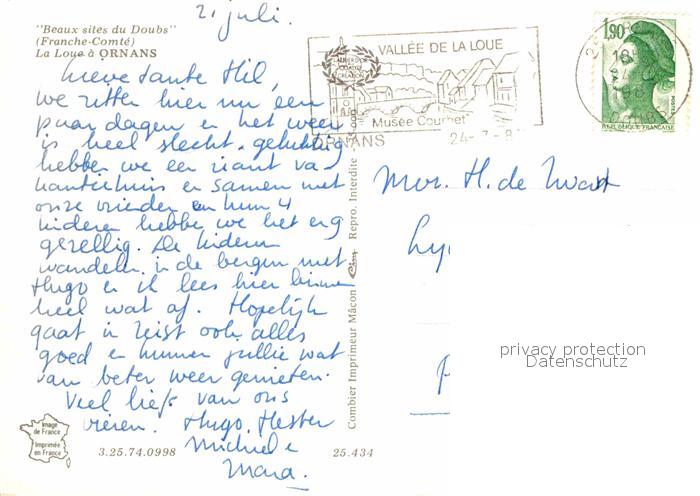 2. juli.
"Beaux sites du Doubs"
(Franche-Comté)
La Loue à ORNANS
Lieve tante Hil,
we zitten hier nu een
paar dagen en het weer
is heel slecht. gelukkig
hebben we een riant va-
kantiehuis en samen met
onze vrienden en hun 4
kinderen hebben we het erg
gezellig. De kinderen
wandelen in de bergen met
Hugo en ik lees hier binnen
heel wat af. Hopelijk
gaat in Zeist ook alles
goed en kunnen jullie wat
van beter weer genieten.
Veel liefs van ons
vieren. Hugo, Hester
Michiel e
Mara.
Image
de France
Imprimée
en France
3.25.74.0998
25.434
Combier Imprimeur Mâcon Cim Repro. Interdite
VALLÉE DE LA LOUE
Musée Courbet
ORNANS
24-7-8
1,90
REPUBLIQUE FRANCAISE
DOUBS
Mevr. H. de Zwart
privacy protection
Datenschutz